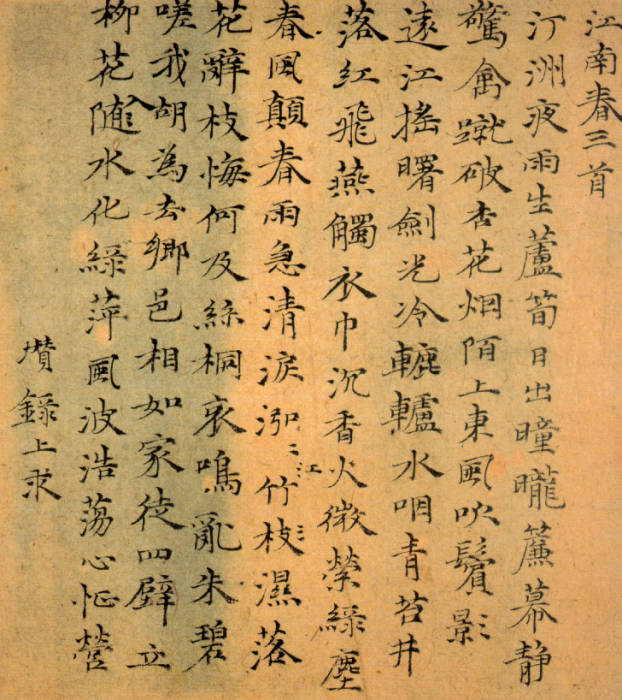 江南春三首
汀洲夜雨生蘆筍日出曈曨簾幕静
驚禽蹴破杏花烟陌上東風吹鬢影
遠江摇曙劍光冷轆轤水咽青苔井
落紅飛燕觸衣巾沉香火微縈緑塵
春風顛春雨急清淚泓〻江竹枝濕落
花辭枝悔何及絲桐哀鳴亂朱碧
嗟我胡為去鄉邑相如家徒四壁立
柳花隨水化緑萍風波浩蕩心怔營
瓚録上求